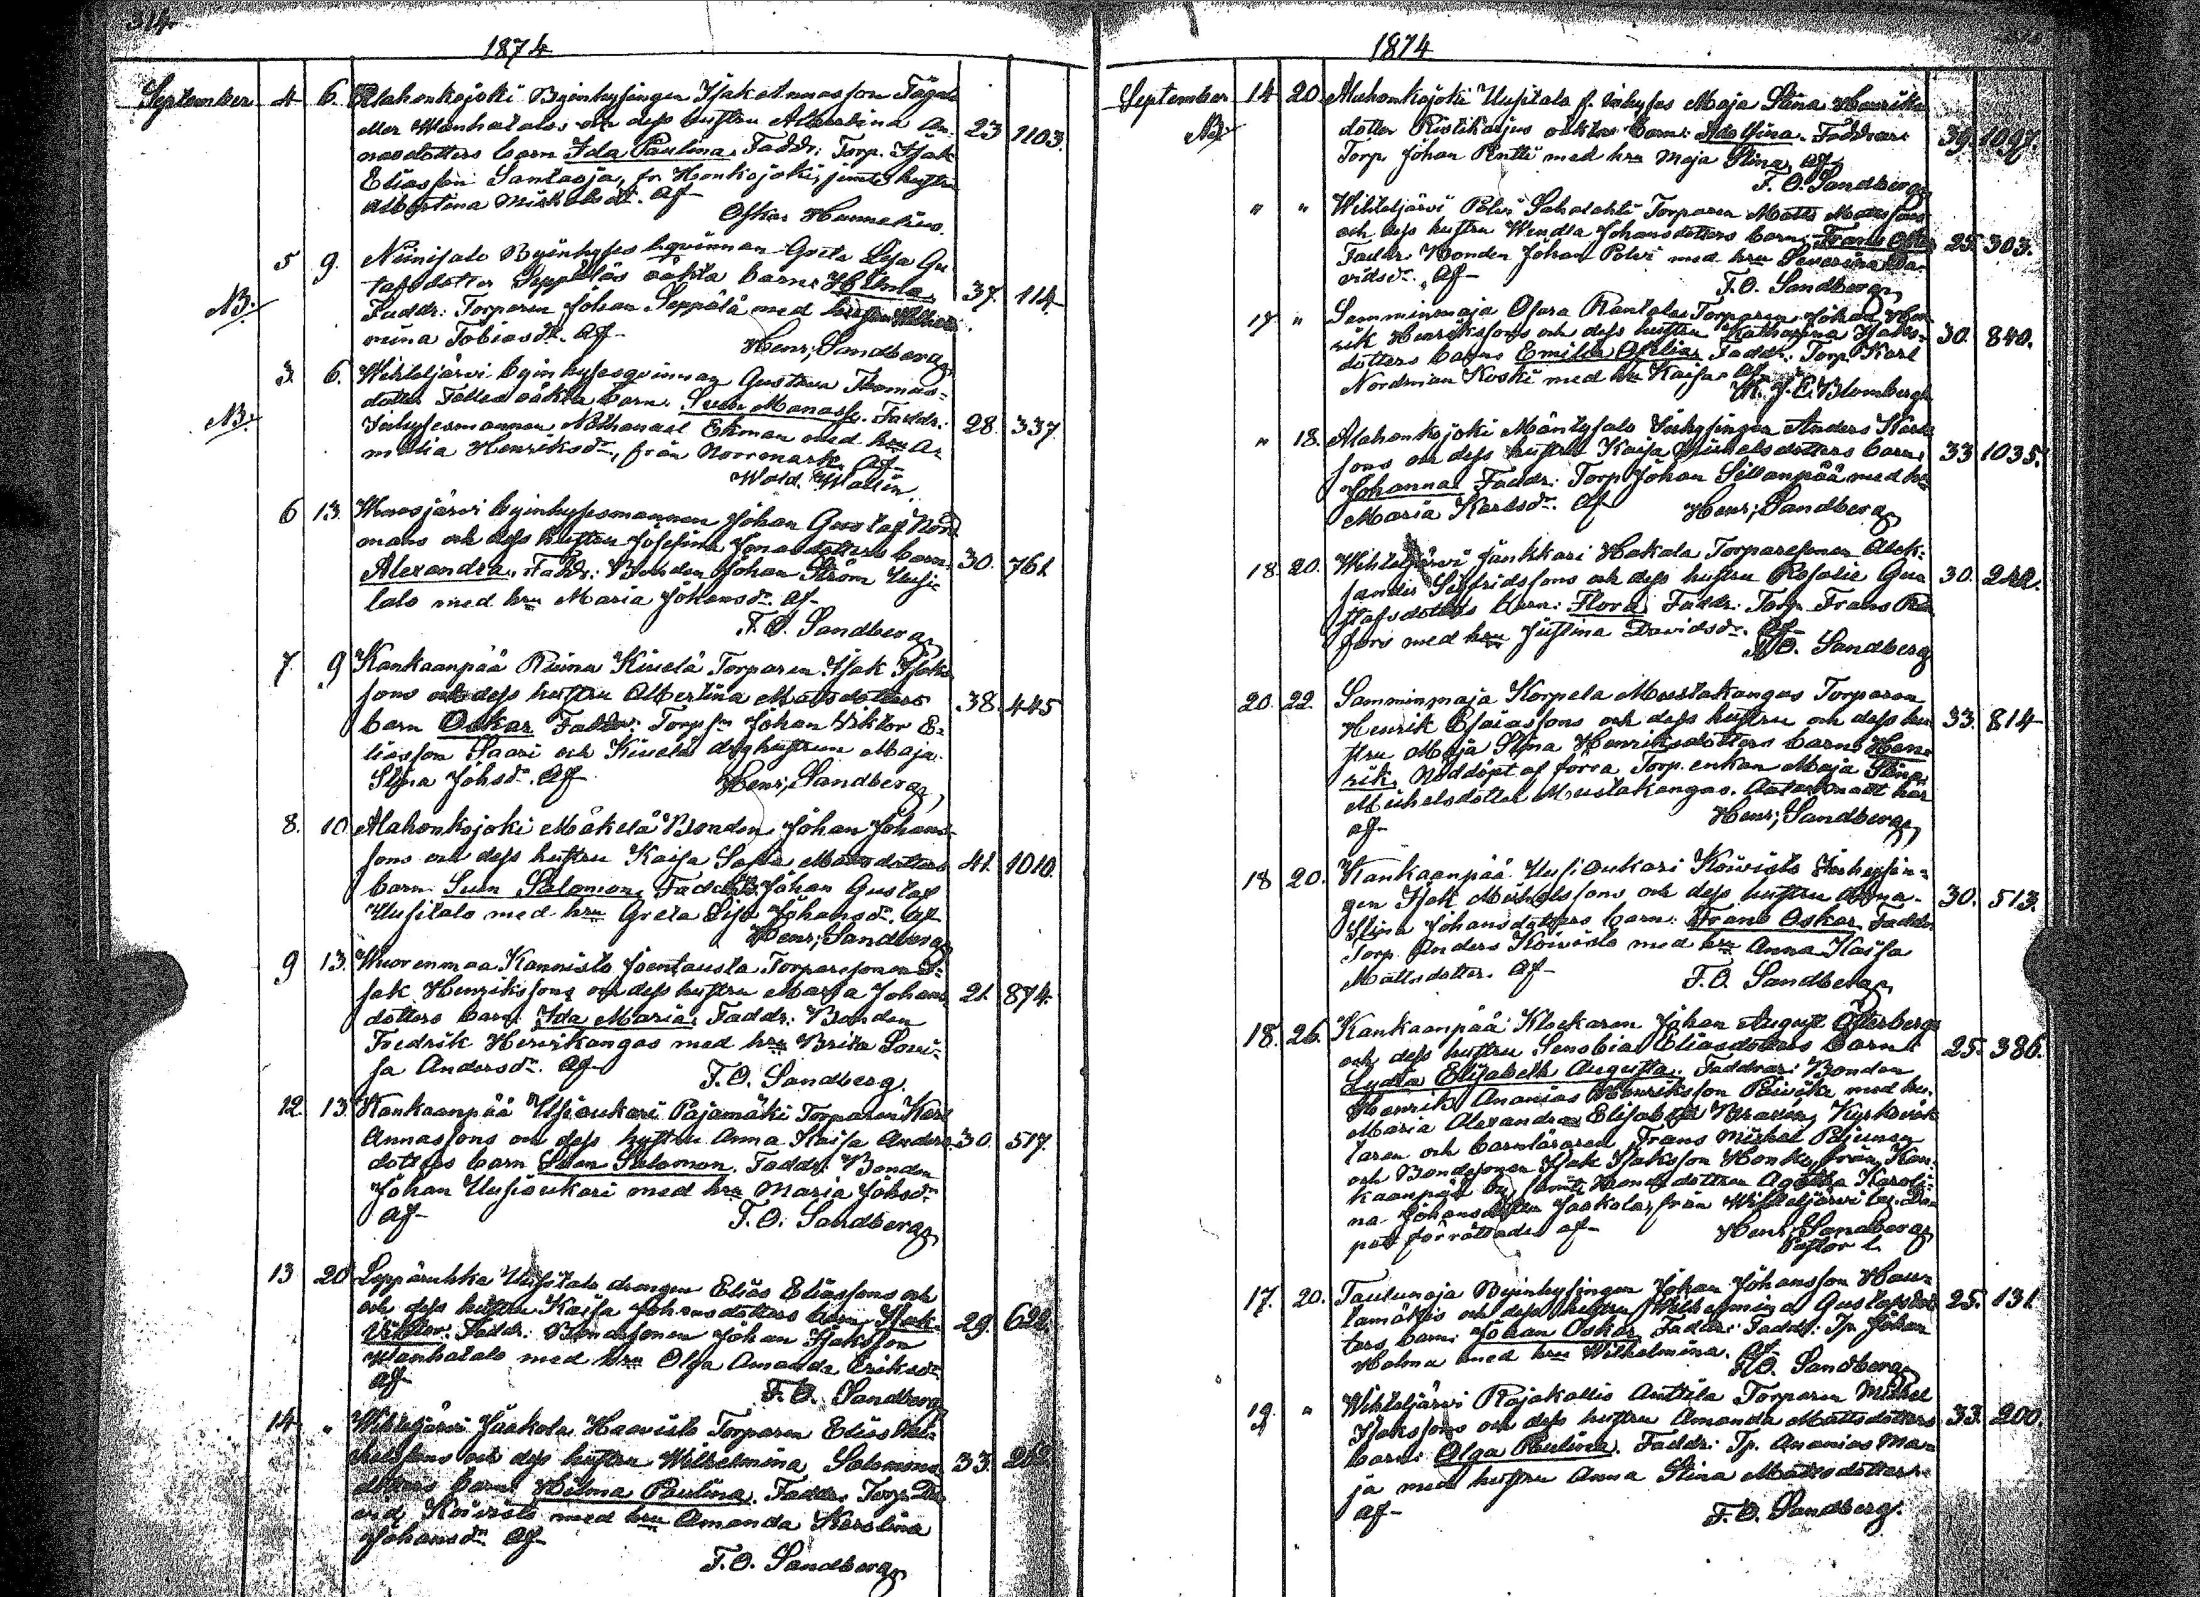 314
1874
September 4 6. Alahonkajoki Byinhysingen Isak Annasson Tägal
eller Wanhatalos och dess hustru Albertina An-
nasdotters barn Ida Paulina. Faddr: Torp. Isak 23 1103.
Eliasson Santaoja, fr Honkojoki, jemte hustru
Albertina Mickelsdr. Af
Oskar Hannelius.
5 9. Niinisalo Byinhyses qvinnan Greta Lisa Gu-
stafsdotter Seppäläs oäkta barn: Hilma. 37. 114
NB. Faddr: Torparen Johan Seppälä med
mina Tobiasdr. Af
Henr; Sandberg
3. 6. Wihteljärvi byinhysesqvinnan Gustava Thomas-
dotter Fälles oäkta barn. Sven Manasse. Faddr: 28. 337
NB. Inhysesmannen Nathanael Ekman med hru A-
malia Henriksdr, från Norrmark. Af
Wald. Wallin.
6 13. Wenesjärvi byinhysesmannen Johan Gustaf Nord
mans och dess hustru Josefina Jonasdotters barn 30. 761
Alexandra. Faddr: Bonden Johan Ström Uusi-
talo med hru Maria Johansdr. Af
F. O. Sandberg
7. 9 Kankaanpää Ruina Kiuelä Torparen Isak Isaks
sons och dess hustru Albertina Mattsdotters 38. 445
barn Oskar. Faddr: Torp sn Johan Viktor E-
liasson Saari och Kiuelä dgs hustrun Maja
Stina Johsdr. Af
Henr; Sandberg,
8. 10. Alahonkojoki Mäkelä Bonden Johan Johans-
sons och dess hustru Kaisa Sofia Mattsdotters 41. 1010.
barn Sven Salomon. Faddr: B. Johan Gustaf
Uusitalo med hru Greta Lisa Johansdr. Af
Henr; Sandberg
9 13. Wuorenmaa Kannisto Joentausta Torparesonen I-
sak Henrikssons och dess hustru Maria Johans 21. 874.
dotters barn: Ida Maria. Faddr: Bonden
Fredrik Hirvikangas med hru Brita Lovi-
sa Andersdr. Af
F. O. Sandberg.
12. 13. Kankaanpää Uusioukari Pajamäki Torparen Karl
Annassons och dess hustru Anna Kaisa Anders 30. 517.
dotters barn Sven Salomon. Faddr: Bonden
Johan Uusioukari med hru Maria Johsdr
Af
F. O. Sandberg
13 20 Leppäruhka Uusitalo drängen Elias Eliassons och
och dess hustru Kaisa Johansdotters barn: Isak 29. 622.
Viktor. Faddr: Bondesonen Johan Isaksson
Wanhatalo med hru Olga Amanda Eriksdr
Af
F. O. Sandberg
14 " Wihteljärvi Jaakola Haavisto Torparen Elias Mi-
kelssons och dess hustru Wilhelmina Salomons 33. 262.
dotters barn: Hilma Paulina. Faddr: Torp. Da-
vid Koivisto med hru Amanda Karolina
Johansdr. Af
F. O. Sandberg
1874
September 14 20. Alahonkojoki Uusitalo f. inhyses Maja Stina Henriks
NB. dotter Ristikarjus oäkta barn: Adolfina. Faddrar: 39. 1097.
Torp Johan Pentti med hru Maja Stina. Af
F. O. Sandberg
" " Wihteljärvi Polvi Sahalahti Torparen Matts Mattssons
och dess hustru Wendla Johansdotters barn: Frans Oskar 25. 303.
Faddr: Bonden Johan Polvi med hru Severina Da-
vidsdr. Af
F. O. Sandberg
17 " Samminmaja Ojara Rantala Torparen Johan Hen
rik Henrikssons och dess hustru Katharina Isaks- 30. 840.
dotters barn: Emilia Ofelia. Faddr: Torp. Karl
Nordman Koski med hru Kaisa. Af
K. J. E. Blomberg
" 18. Alahonkojoki Mäntysalo Inhysingen Anders Karls
sons och dess hustru Kaisa Mickelsdotters barn: 33 1035.
Johanna. Faddr: Torp. Johan Sillanpää med hr
Maria Karlsdr. Af
Henr; Sandberg
18. 20. Wihteljärvi Jänkkäri Hakala Torparesonen Alek-
sander Sigfridssons och dess hustru Rosalie Gu- 30. 242.
stafsdotters barn: Flora. Faddr: Torp. Frans
fors med hru Justina Davidsdr. Af
F. O. Sandberg
20. 22. Samminmaja Korpela Mustakangas Torparen
Henrik Esaiassons och dess hustru och dess hu- 33. 814
stru Maja Stina Henriksdotters barn: Hen-
rik. Nöddöpt af förra Torp. enkan Maja Stina
Mickelsdotter Mustakangas.
af
Henr; Sandberg,
18 20. Kankaanpää Uusioukari Koivisto Inhysin-
gen Isak Mickelssons och dess hustru Anna- 30. 513.
Stina Johansdotters barn: Frans Oskar. Faddr:
Torp. Anders Koivisto med hru Anna Kaisa
Mattsdotter. Af
F. O. Sandberg
18. 26. Kankaanpää Klockaren Johan August Österbergs
och dess hustru Senobia Eliasdotters barn: 25. 386.
Lydia Elisabeth Augusta. Faddrar: Bonden
Henrik Ananias Henriksson Päivike med hu.
Maria Alexandra Elisabeth
laren och barnläraren Frans Mickel
och Bondesonen Isak Isaksson Honko, från Kan-
kaanpää by, samt Bondedottren Agatha Karoli-
na Johansdotter Jaakola, från Wihteljärvi by. Do-
pet förrättades af
Henr; Sandberg
Pastor l.
17. 20. Taulunoja Byinhysingen Johan Johansson Hau-
tamäkis och dess hustru Wilhelmina Gustafsdot 25. 131
ters barn: Johan Oskar. Faddr: Faddr: Tp. Johan
Holma med hru Wilhelmina. Af
F. O. Sandberg
19. " Wihteljärvi Rajakallio Anttila Torparen Mickel
Isakssons och dess hustru Amanda Mattsdotters 33. 200.
barn: Olga Paulina. Faddr: Tp. Ananias Ma-
ja med hustru Anna Stina Mattsdotter.
Af
F. O. Sandberg.